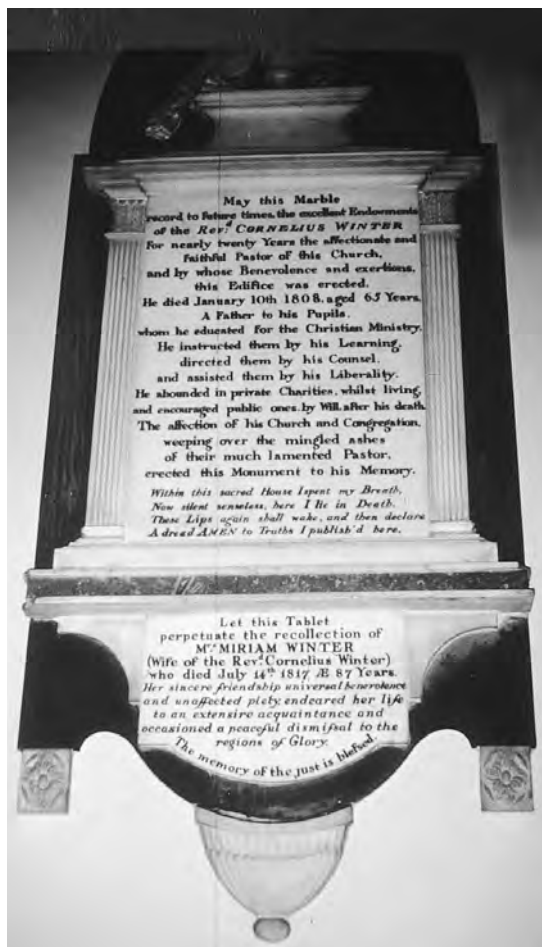 May this Marble
record to future times, the excellent Endowments
of the Revd. CORNELIUS WINTER
For nearly twenty Years the affectionate and
Faithful Pastor of this Church,
and by whose Benevolence and exertions,
this Edifice was erected.
He died January 10th 1808, aged 65 Years.
A Father to his Pupils,
whom he educated for the Christian Ministry.
He instructed them by his Learning,
directed them by his Counsel,
and assisted them by his Liberality.
He abounded in private Charities, whilst living,
and encouraged public ones, by Will, after his death.
The affection of his Church and Congregation,
weeping over the mingled ashes
of their much lamented Pastor,
erected this Monument to his Memory.
Within this sacred House I spent my Breath,
Now silent senseless, here I lie in Death.
These Lips again shall wake, and then declare
A dread AMEN to Truths I publish'd here.
Let this Tablet
perpetuate the recollection of
Mrs. MIRIAM WINTER
(Wife of the Revd. Cornelius Winter)
who died July 14th 1817, Æ 87 Years.
Her sincere friendship universal benevolence
and unaffected piety, endeared her life
to an extensive acquaintance and
occasioned a peaceful dismiſsal to the
regions of Glory.
The memory of the just is bleſsed.